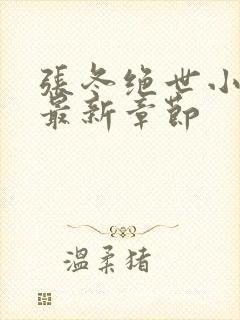 張冬绝世小
最新章節
温柔猪